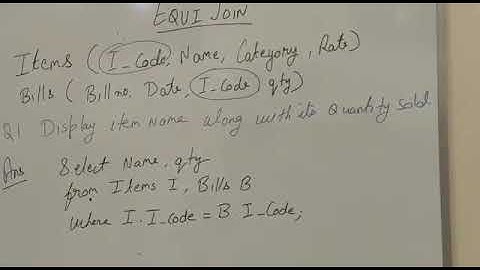 EQUI JOIN
Items ( I_Code, Name, Category, Rate)
Bills ( Bill no. Date, I_Code qty)
Q1 Display item Name along with its Quantity sold.
Ans Select Name, qty
from Items I, Bills B
where I. I_code = B I_Code;